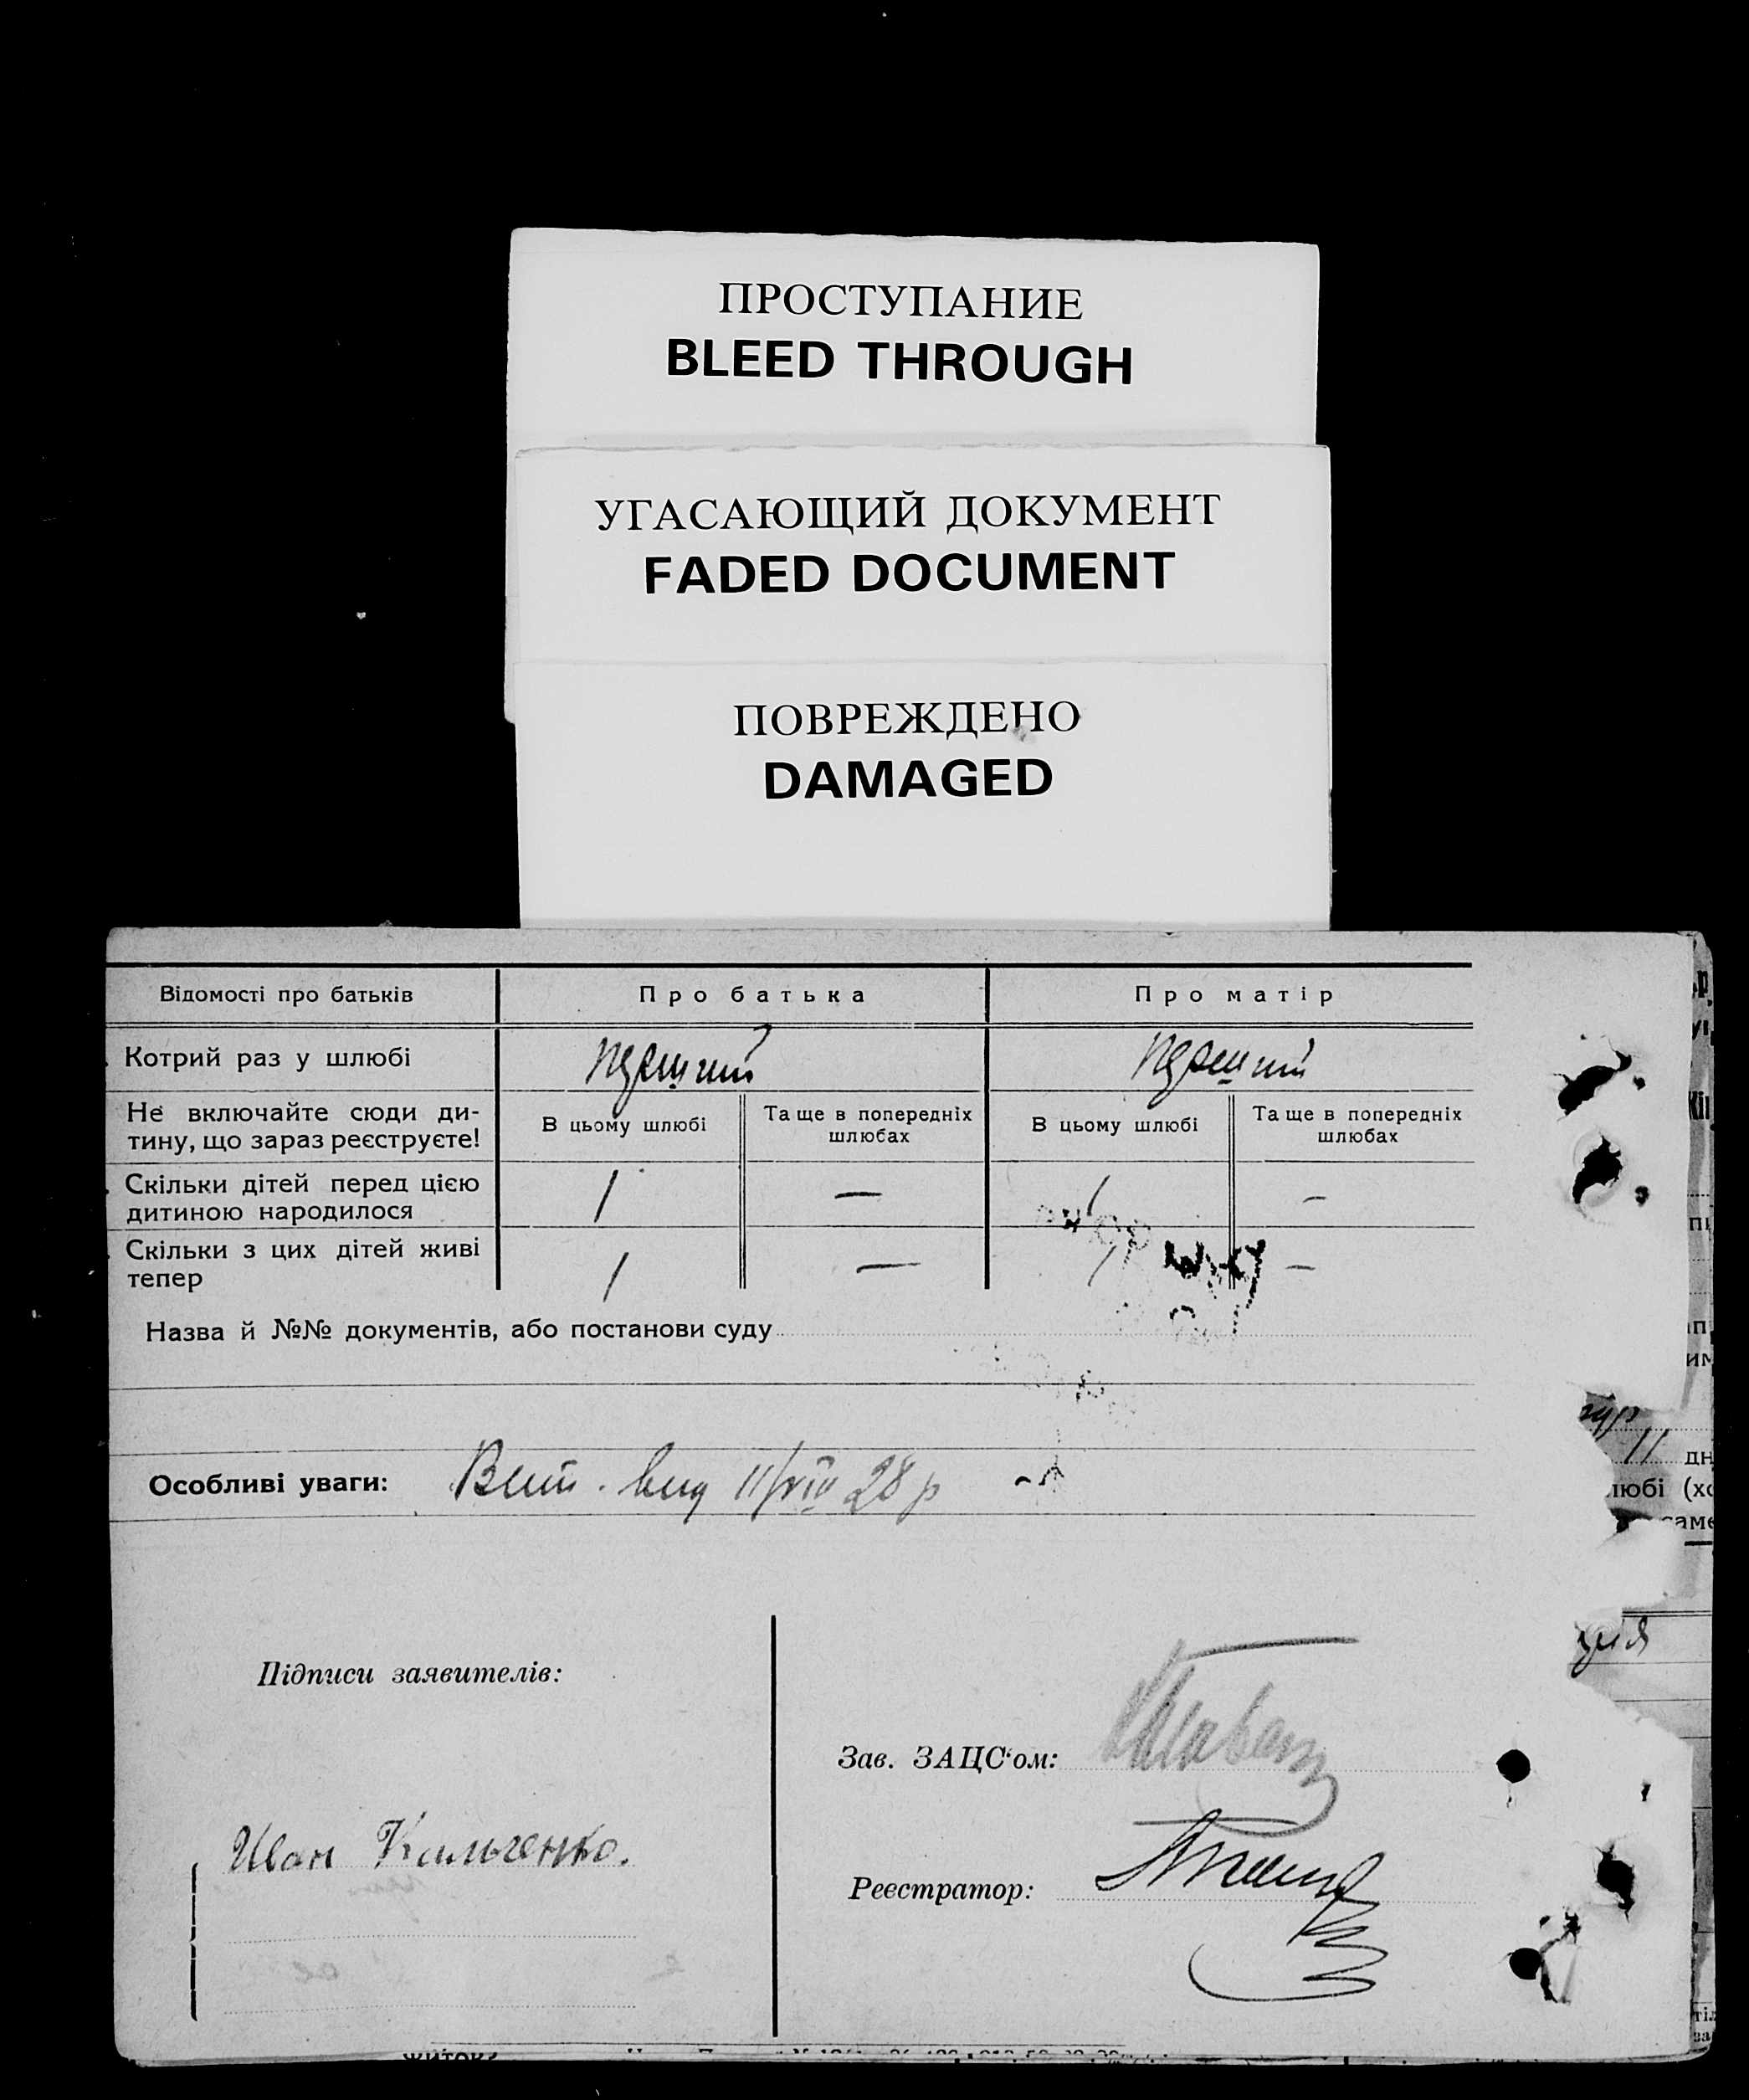 ПРОСТУПАНИЕ
BLEED THROUGH
УГАСАЮЩИЙ ДОКУМЕНТ
FADED DOCUMENT
ПОВРЕЖДЕНО
DAMAGED
Відомості про батьків Про батька Про матір
Котрий раз у шлюбі
Не включайте сюди ди-
тину, що зараз реєструєте!
В цьому шлюбі
Та ще в попередніх
шлюбах
В цьому шлюбі
Та ще в попередніх
шлюбах
Скільки дітей перед цією
дитиною народилося
1 — 1 —
Скільки з цих дітей живі
тепер
1 — 1 —
Назва й №№ документів, або постанови суду
Особливі уваги: 11/VIII 28 р
Підписи заявителів:
Зав. ЗАЦС'ом:
Иван
Реєстратор:
11 дн
любі (хо
саме